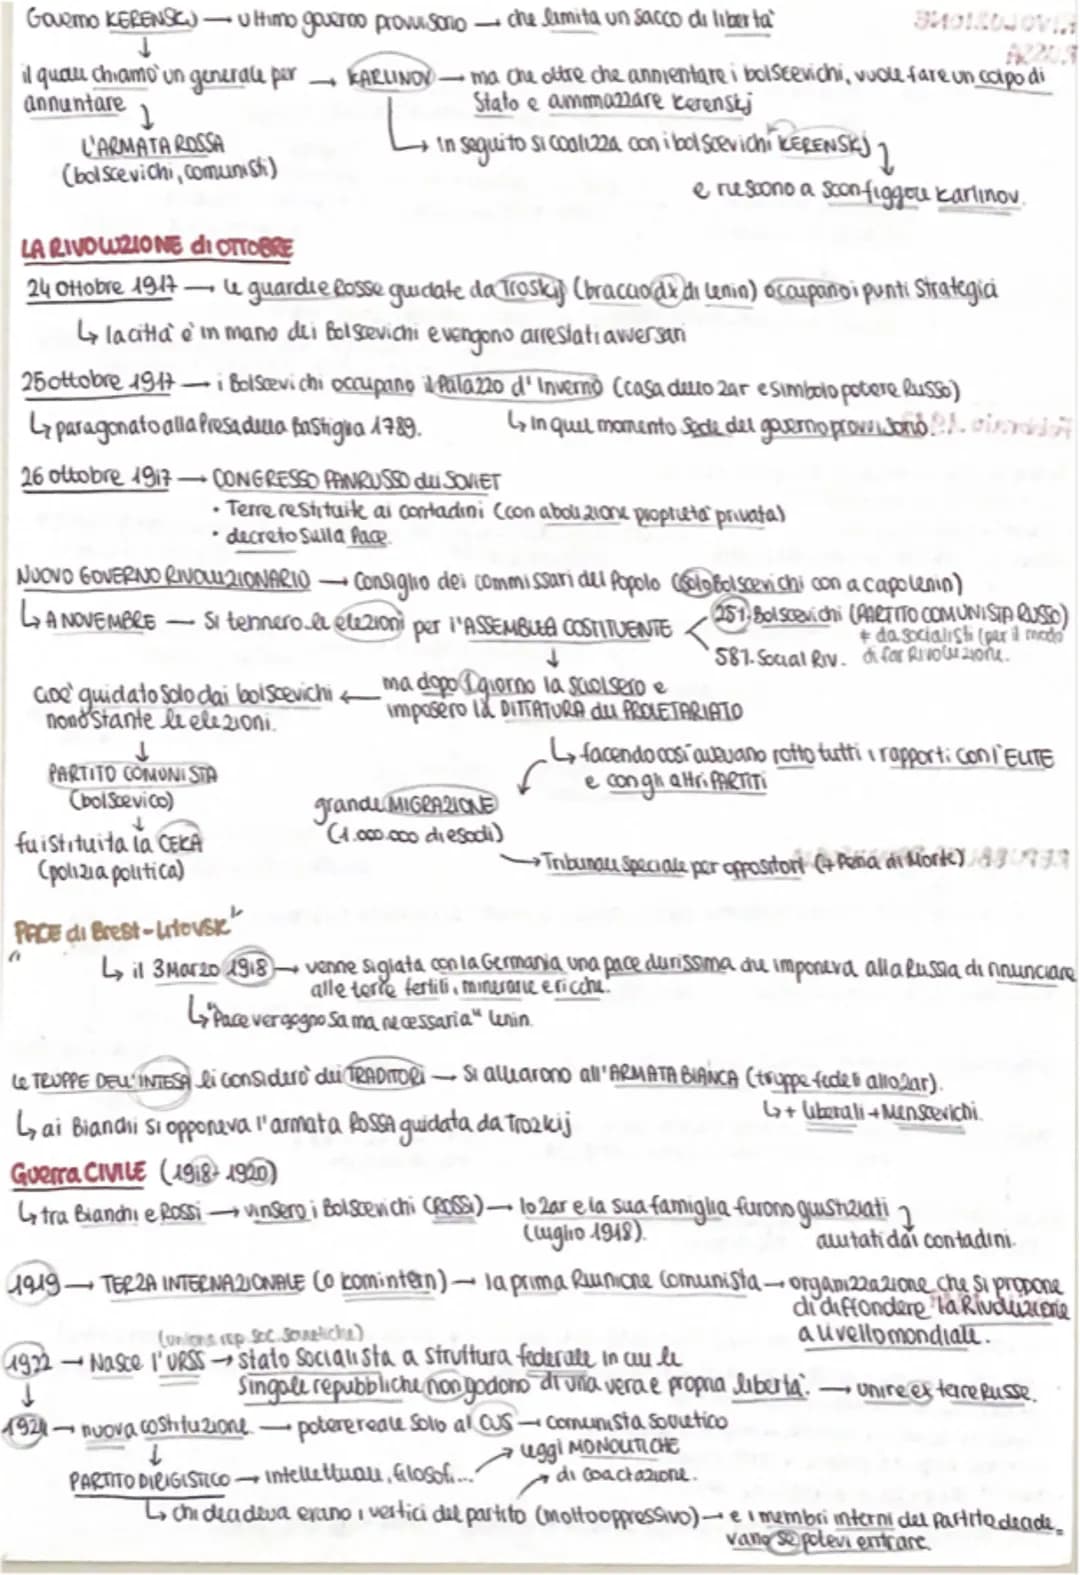 Governo KERENSKJ → ultimo governo provvisorio → che limita un sacco di libertà
↓
il quale chiamò un generale per → KARLINOV — ma che oltre che annientare i bolscevichi, vuole fare un colpo di
annuntare ↓ Stato e ammazzare Kerenskj
L'ARMATA ROSSA ↳ in seguito si coalizza con i bolscevichi KERENSKJ ↓
(bolscevichi, comunisti) e riescono a sconfiggere Karlinov.
LA RIVOLUZIONE di OTTOBRE
24 ottobre 1917 → le guardie Rosse guidate da Troskij (braccio dx di Lenin) occupano i punti Strategici
↳ la città è in mano dei Bolscevichi e vengono arrestati avversari
25 ottobre 1917 → i Bolscevichi occupano il Palazzo d'Inverno (casa dello zar e simbolo potere Russo)
↳ paragonato alla Presa della Bastiglia 1789. ↳ In quel momento sede del governo provvisorio.
26 ottobre 1917 → CONGRESSO PANRUSSO dei SOVIET
• Terre restituite ai contadini (con abolizione proprietà privata)
• decreto sulla Pace
NUOVO GOVERNO RIVOLUZIONARIO → Consiglio dei commissari del Popolo (solo Bolscevichi con a capo Lenin)
↳ A NOVEMBRE — Si tennero le elezioni per l'ASSEMBLEA COSTITUENTE < 25% Bolscevichi (PARTITO COMUNISTA RUSSO)
≠ da socialisti (per il modo
↓ 58% Social Riv. di far Rivoluzione.
cioè guidato solo dai bolscevichi ← ma dopo 1 giorno la sciolsero e
nonostante le elezioni. imposero la DITTATURA del PROLETARIATO
↓ ↳ facendo così avevano rotto tutti i rapporti con l'ELITE
PARTITO COMUNISTA e con gli altri PARTITI
(bolscevico) grande MIGRAZIONE
↓ (1.000.000 di esodi)
fu istituita la CEKA → Tribunale Speciale per oppositori (+ Pena di Morte)
(polizia politica)
"PACE di Brest-Litovsk"
↳ il 3 Marzo 1918 → venne siglata con la Germania una pace durissima che imponeva alla Russia di rinunciare
alle terre fertili, minerarie e ricche.
↳ "Pace vergognosa ma necessaria" Lenin.
Le TRUPPE DELL'INTESA li considerò dei TRADITORI — Si allearono all'ARMATA BIANCA (truppe fedeli allo zar).
↳ + liberali + Menscevichi.
↳ ai Bianchi si opponeva l'armata ROSSA guidata da Trozkij
Guerra CIVILE (1918-1920)
↳ tra Bianchi e Rossi → vinsero i Bolscevichi (ROSSI) → lo zar e la sua famiglia furono giustiziati ↓
(luglio 1918). aiutati dai contadini.
1919 → TERZA INTERNAZIONALE (o komintern) → la prima Riunione Comunista → organizzazione che si propone
di diffondere la Rivoluzione
a livello mondiale.
(unione rep. soc. sovietiche)
1922 → Nasce l'URSS → stato Socialista a struttura federale in cui le
↓ singole repubbliche non godono di una vera e propria libertà. → unire ex terre Russe.
1924 → nuova costituzione → potere reale solo al CUS → comunista sovietico
↓ → leggi MONOLITICHE
PARTITO DIRIGISTICO → intellettuali, filosofi... → di coactazione.
↳ chi decideva erano i vertici del partito (molto oppressivo) → e i membri interni del Partito decide-
vano se potevi entrare.